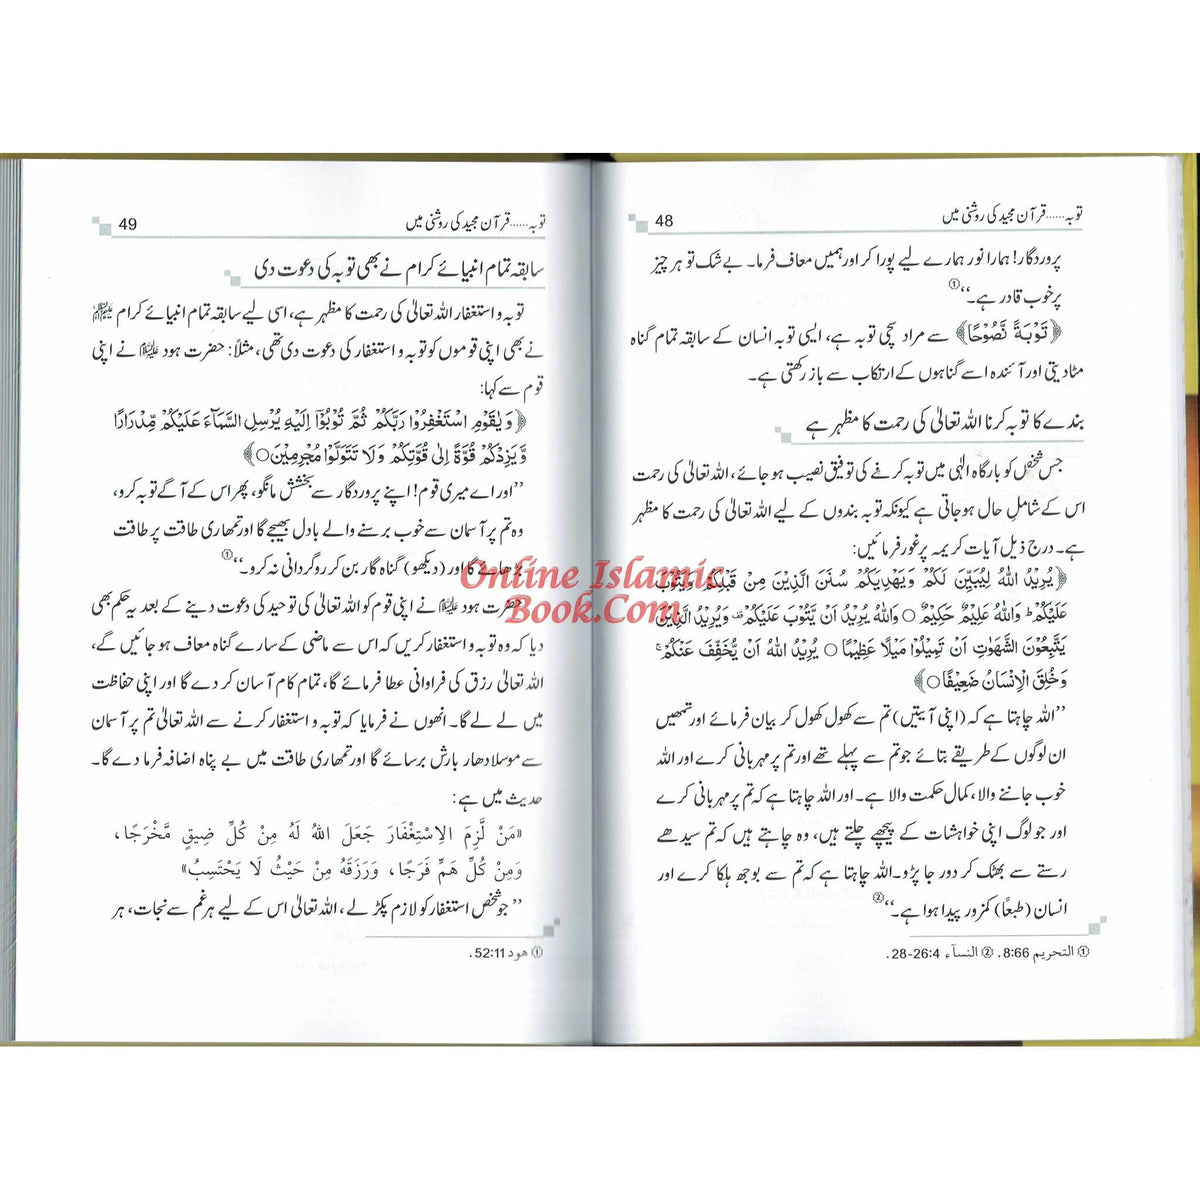 توبہ......قرآن مجید کی روشنی میں 48
پروردگار! ہمارا نور ہمارے لیے پورا کر اور ہمیں معاف فرما۔ بے شک تو ہر چیز
پر خوب قادر ہے۔‘‘①
﴿تَوْبَةً نَّصُوْحًا﴾ سے مراد سچی توبہ ہے، ایسی توبہ انسان کے سابقہ تمام گناہ
مٹادیتی اور آئندہ اسے گناہوں کے ارتکاب سے باز رکھتی ہے۔
بندے کا توبہ کرنا اللہ تعالیٰ کی رحمت کا مظہر ہے
جس شخص کو بارگاہ الٰہی میں توبہ کرنے کی توفیق نصیب ہو جائے، اللہ تعالیٰ کی رحمت
اس کے شاملِ حال ہو جاتی ہے کیونکہ توبہ بندوں کے لیے اللہ تعالیٰ کی رحمت کا مظہر
ہے۔ درج ذیل آیات کریمہ پر غور فرمائیں:
﴿يُرِيْدُ اللّٰهُ لِيُبَيِّنَ لَكُمْ وَيَهْدِيَكُمْ سُنَنَ الَّذِيْنَ مِنْ قَبْلِكُمْ وَيَتُوْبَ
عَلَيْكُمْ ؕ وَاللّٰهُ عَلِيْمٌ حَكِيْمٌ ○ وَاللّٰهُ يُرِيْدُ اَنْ يَّتُوْبَ عَلَيْكُمْ ۫ وَيُرِيْدُ الَّذِيْنَ
يَتَّبِعُوْنَ الشَّهَوٰتِ اَنْ تَمِيْلُوْا مَيْلًا عَظِيْمًا ○ يُرِيْدُ اللّٰهُ اَنْ يُّخَفِّفَ عَنْكُمْ ۚ
وَخُلِقَ الْاِنْسَانُ ضَعِيْفًا ○﴾
’’اللہ چاہتا ہے کہ (اپنی آیتیں) تم سے کھول کھول کر بیان فرمائے اور تمھیں
ان لوگوں کے طریقے بتائے جو تم سے پہلے تھے اور تم پر مہربانی کرے اور اللہ
خوب جاننے والا، کمال حکمت والا ہے۔ اور اللہ چاہتا ہے کہ تم پر مہربانی کرے
اور جو لوگ اپنی خواہشات کے پیچھے چلتے ہیں، وہ چاہتے ہیں کہ تم سیدھے
رستے سے بھٹک کر دور جا پڑو۔ اللہ چاہتا ہے کہ تم سے بوجھ ہلکا کرے اور
انسان (طبعاً) کمزور پیدا ہوا ہے۔‘‘②
① التحریم 8:66. ② النسآء 28-26:4.
توبہ......قرآن مجید کی روشنی میں 49
سابقہ تمام انبیائے کرام نے بھی توبہ کی دعوت دی
توبہ و استغفار اللہ تعالیٰ کی رحمت کا مظہر ہے، اسی لیے سابقہ تمام انبیائے کرام
نے بھی اپنی قوموں کو توبہ و استغفار کی دعوت دی تھی، مثلاً: حضرت ہود علیہ السلام نے اپنی
قوم سے کہا:
﴿وَيٰقَوْمِ اسْتَغْفِرُوْا رَبَّكُمْ ثُمَّ تُوْبُوْٓا اِلَيْهِ يُرْسِلِ السَّمَآءَ عَلَيْكُمْ مِّدْرَارًا
وَّيَزِدْكُمْ قُوَّةً اِلٰى قُوَّتِكُمْ وَلَا تَتَوَلَّوْا مُجْرِمِيْنَ ○﴾
’’اور اے میری قوم! اپنے پروردگار سے بخشش مانگو، پھر اس کے آگے توبہ کرو،
وہ تم پر آسمان سے خوب برسنے والے بادل بھیجے گا اور تمھاری طاقت پر طاقت
بڑھائے گا اور (دیکھو) گناہ گار بن کر روگردانی نہ کرو۔‘‘①
حضرت ہود علیہ السلام نے اپنی قوم کو اللہ تعالیٰ کی توحید کی دعوت دینے کے بعد یہ حکم بھی
دیا کہ وہ توبہ و استغفار کریں کہ اس سے ماضی کے سارے گناہ معاف ہو جائیں گے،
اللہ تعالیٰ رزق کی فراوانی عطا فرمائے گا، تمام کام آسان کر دے گا اور اپنی حفاظت
میں لے لے گا۔ انھوں نے فرمایا کہ توبہ و استغفار کرنے سے اللہ تعالیٰ تم پر آسمان
سے موسلادھار بارش برسائے گا اور تمھاری طاقت میں بے پناہ اضافہ فرما دے گا۔
حدیث میں ہے:
«مَنْ لَّزِمَ الِاسْتِغْفَارَ جَعَلَ اللّٰهُ لَهُ مِنْ كُلِّ ضِيقٍ مَّخْرَجًا،
وَمِنْ كُلِّ هَمٍّ فَرَجًا، وَرَزَقَهُ مِنْ حَيْثُ لَا يَحْتَسِبُ»
’’جو شخص استغفار کو لازم پکڑ لے، اللہ تعالیٰ اس کے لیے ہر غم سے نجات، ہر
① ھود 52:11.
Online Islamic
Book.Com